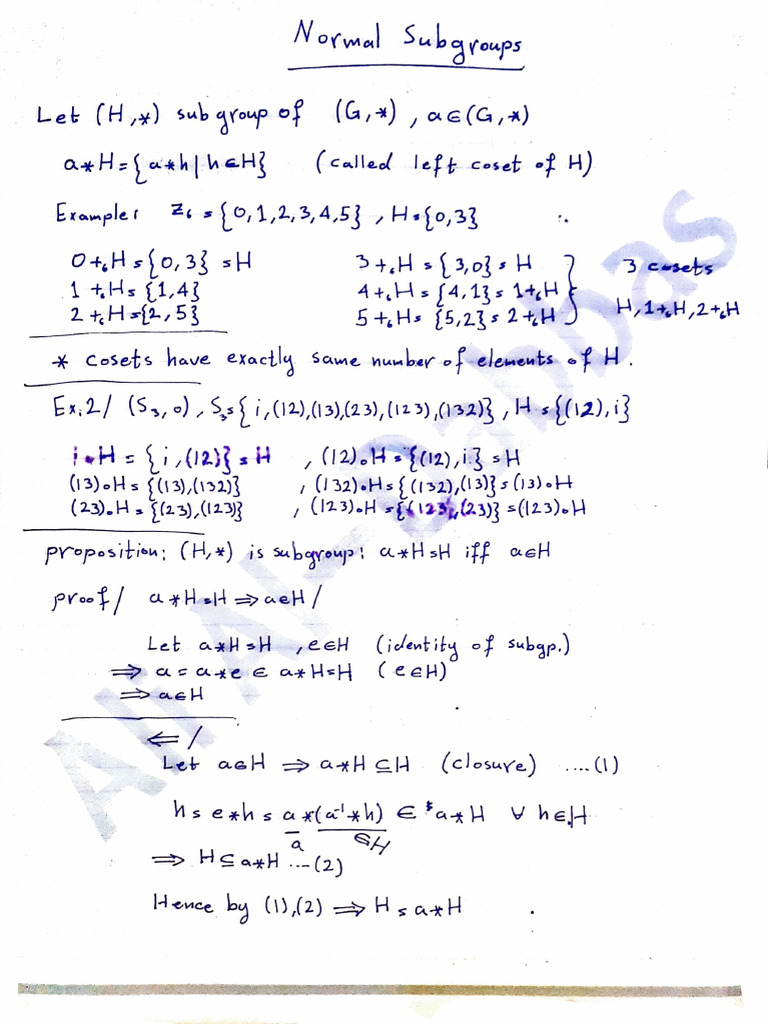 Normal Subgroups
Let (H,*) subgroup of (G,*), a∈(G,*)
a*H={a*h|h∈H} (called left coset of H)
Example: Z₆={0,1,2,3,4,5}, H={0,3}
0+₆H={0,3}=H 3+₆H={3,0}=H 3 cosets
1+₆H={1,4} 4+₆H={4,1}=1+₆H H,1+₆H,2+₆H
2+₆H={2,5} 5+₆H={5,2}=2+₆H
* cosets have exactly same number of elements of H.
Ex.2/ (S₃,o), S₃={i,(12),(13),(23),(123),(132)}, H={(12),i}
i∘H={i,(12)}=H , (12)∘H={(12),i}=H
(13)∘H={(13),(132)} , (132)∘H={(132),(13)}=(13)∘H
(23)∘H={(23),(123)} , (123)∘H={(123),(23)}=(123)∘H
proposition: (H,*) is subgroup: a*H=H iff a∈H
proof/ a*H=H ⇒ a∈H/
Let a*H=H , e∈H (identity of subgp.)
⇒ a=a*e ∈ a*H=H (e∈H)
⇒ a∈H
⇐/
Let a∈H ⇒ a*H⊆H (closure) ....(1)
h=e*h=a*(a⁻¹*h) ∈ a*H ∀ h∈H
a ∈H
⇒ H⊆a*H ...(2)
Hence by (1),(2) ⇒ H=a*H
Ali Al-Dabbas